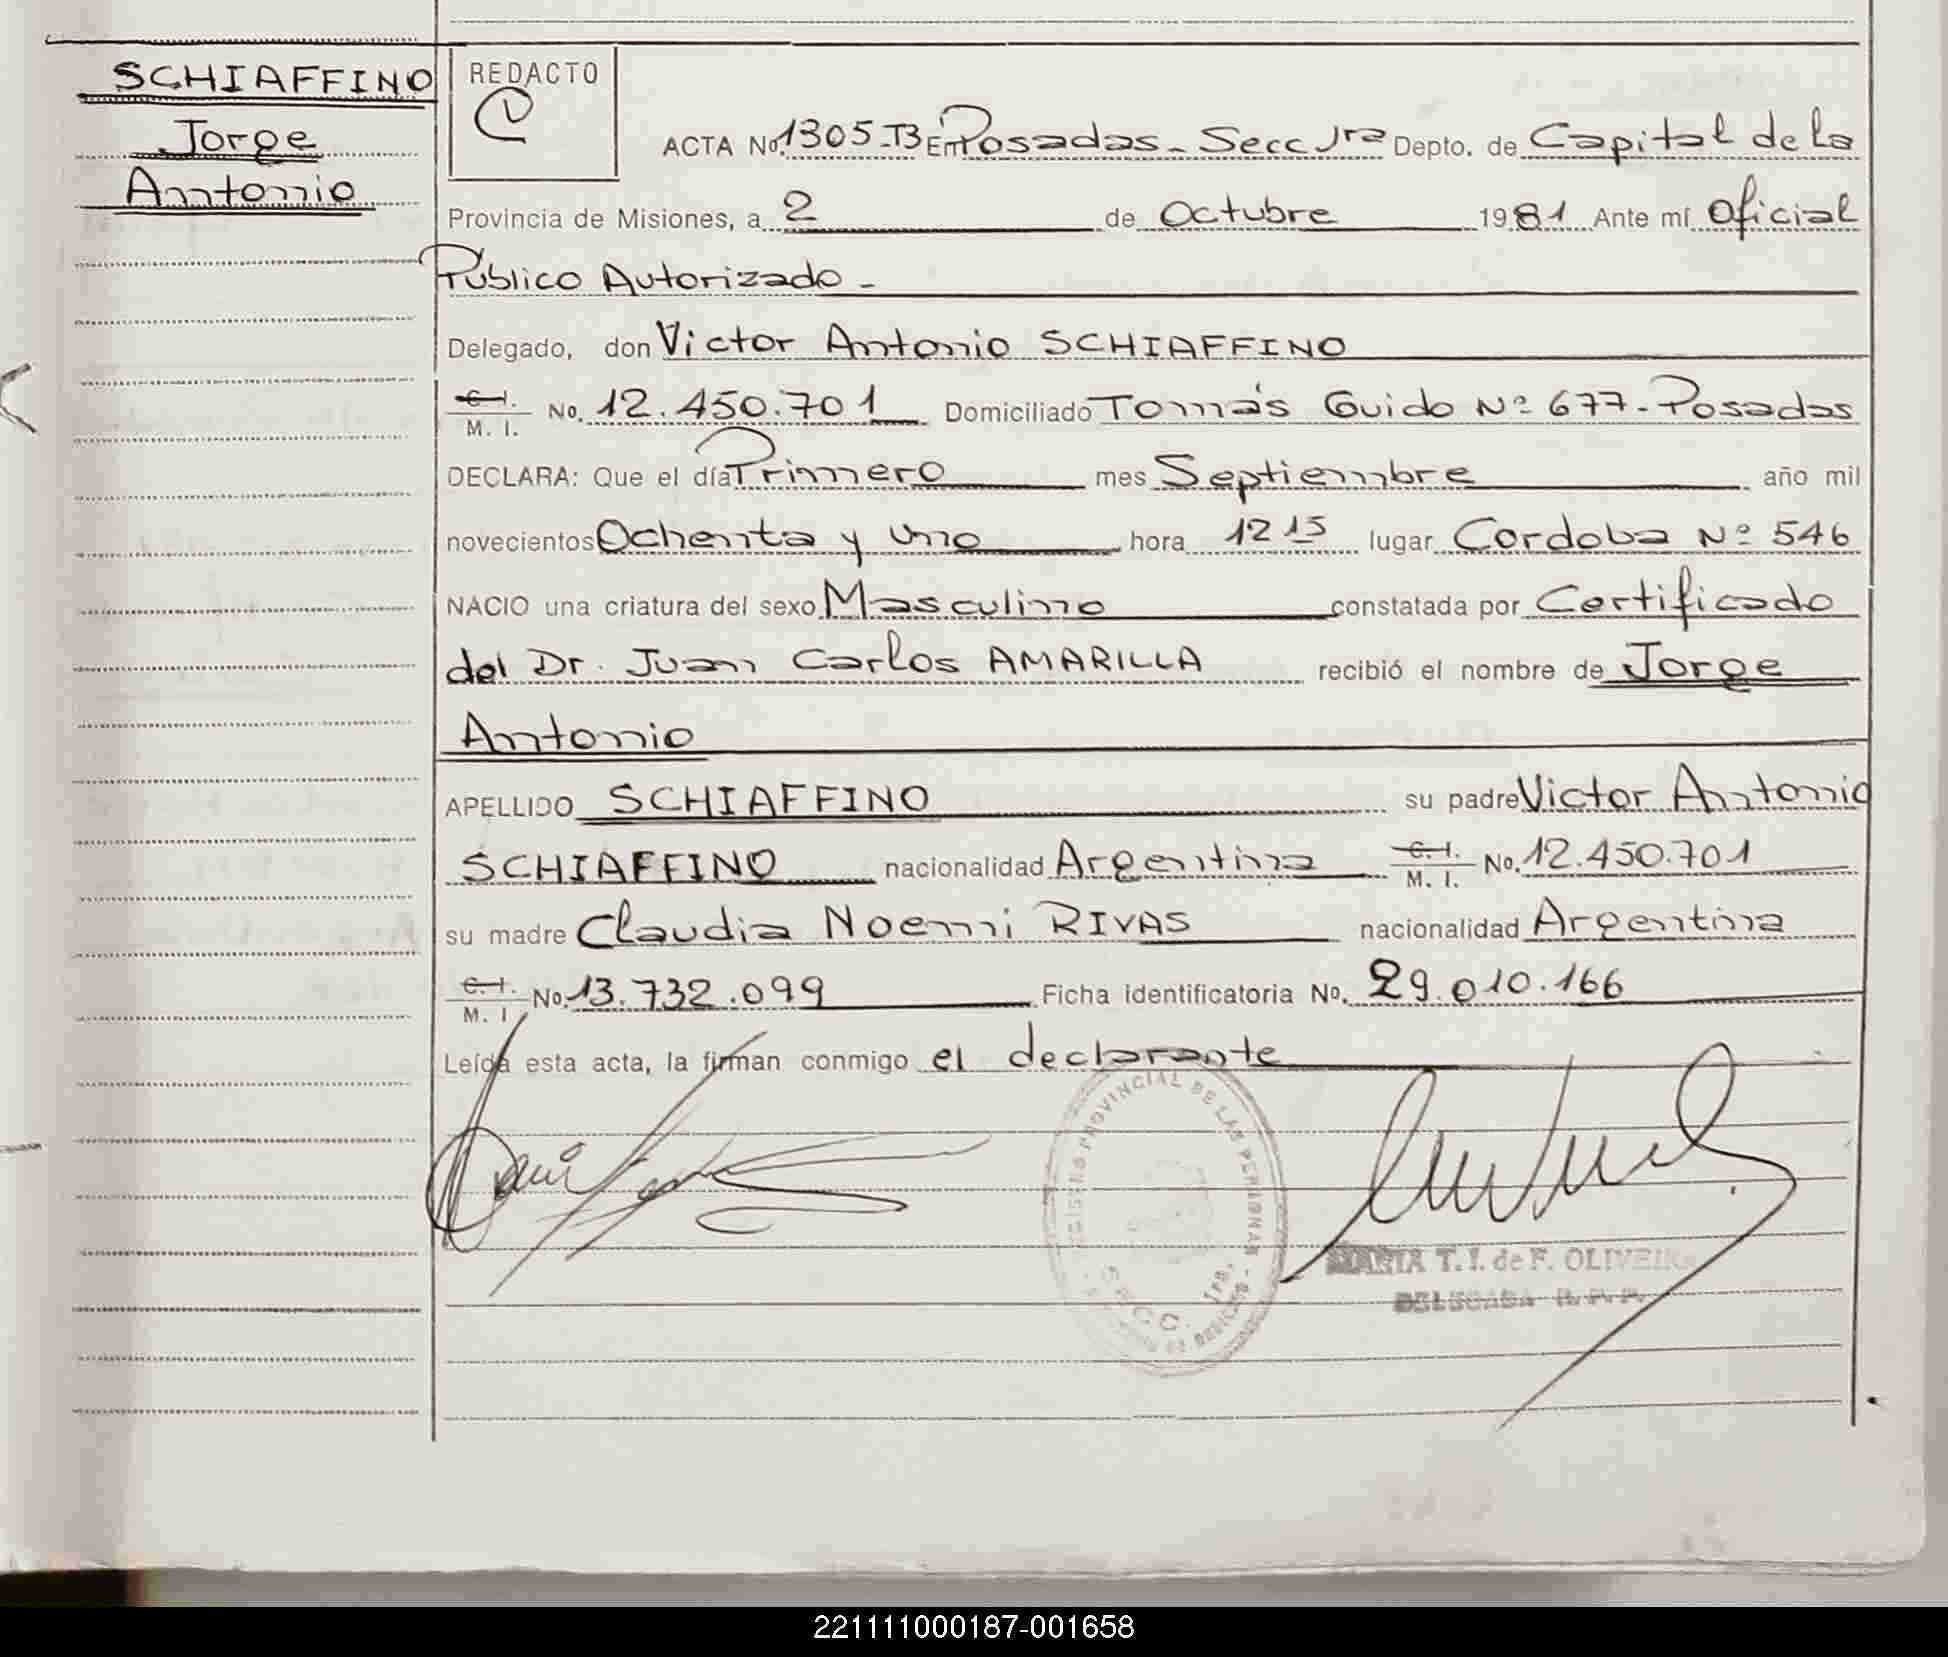 SCHIAFFINO
Jorge
Antonio
REDACTO
ACTA No. 1305-T3 En Posadas - Secc 1ra Depto. de Capital de la
Provincia de Misiones, a 2 de Octubre 1981 Ante mí Oficial
Público Autorizado -
Delegado, don Victor Antonio SCHIAFFINO
C. I.
M. I. No. 12.450.701 Domiciliado Tomás Guido Nº 677 - Posadas
DECLARA: Que el día Primero mes Septiembre año mil
novecientos Ochenta y uno hora 12 15 lugar Cordoba Nº 546
NACIO una criatura del sexo Masculino constatada por Certificado
del Dr. Juan Carlos AMARILLA recibió el nombre de Jorge
Antonio
APELLIDO SCHIAFFINO su padre Victor Antonio
SCHIAFFINO nacionalidad Argentina C. I. M. I. No. 12.450.701
su madre Claudia Noemi RIVAS nacionalidad Argentina
C. I.
M. I No. 13.732.099 Ficha identificatoria No. 29.010.166
Leída esta acta, la firman conmigo el declarante
REGISTRO PROVINCIAL DE LAS PERSONAS
SECC. 1ra.
MARIA T. I. de F. OLIVEIRA
DELEGADA R. P. P.
221111000187-001658